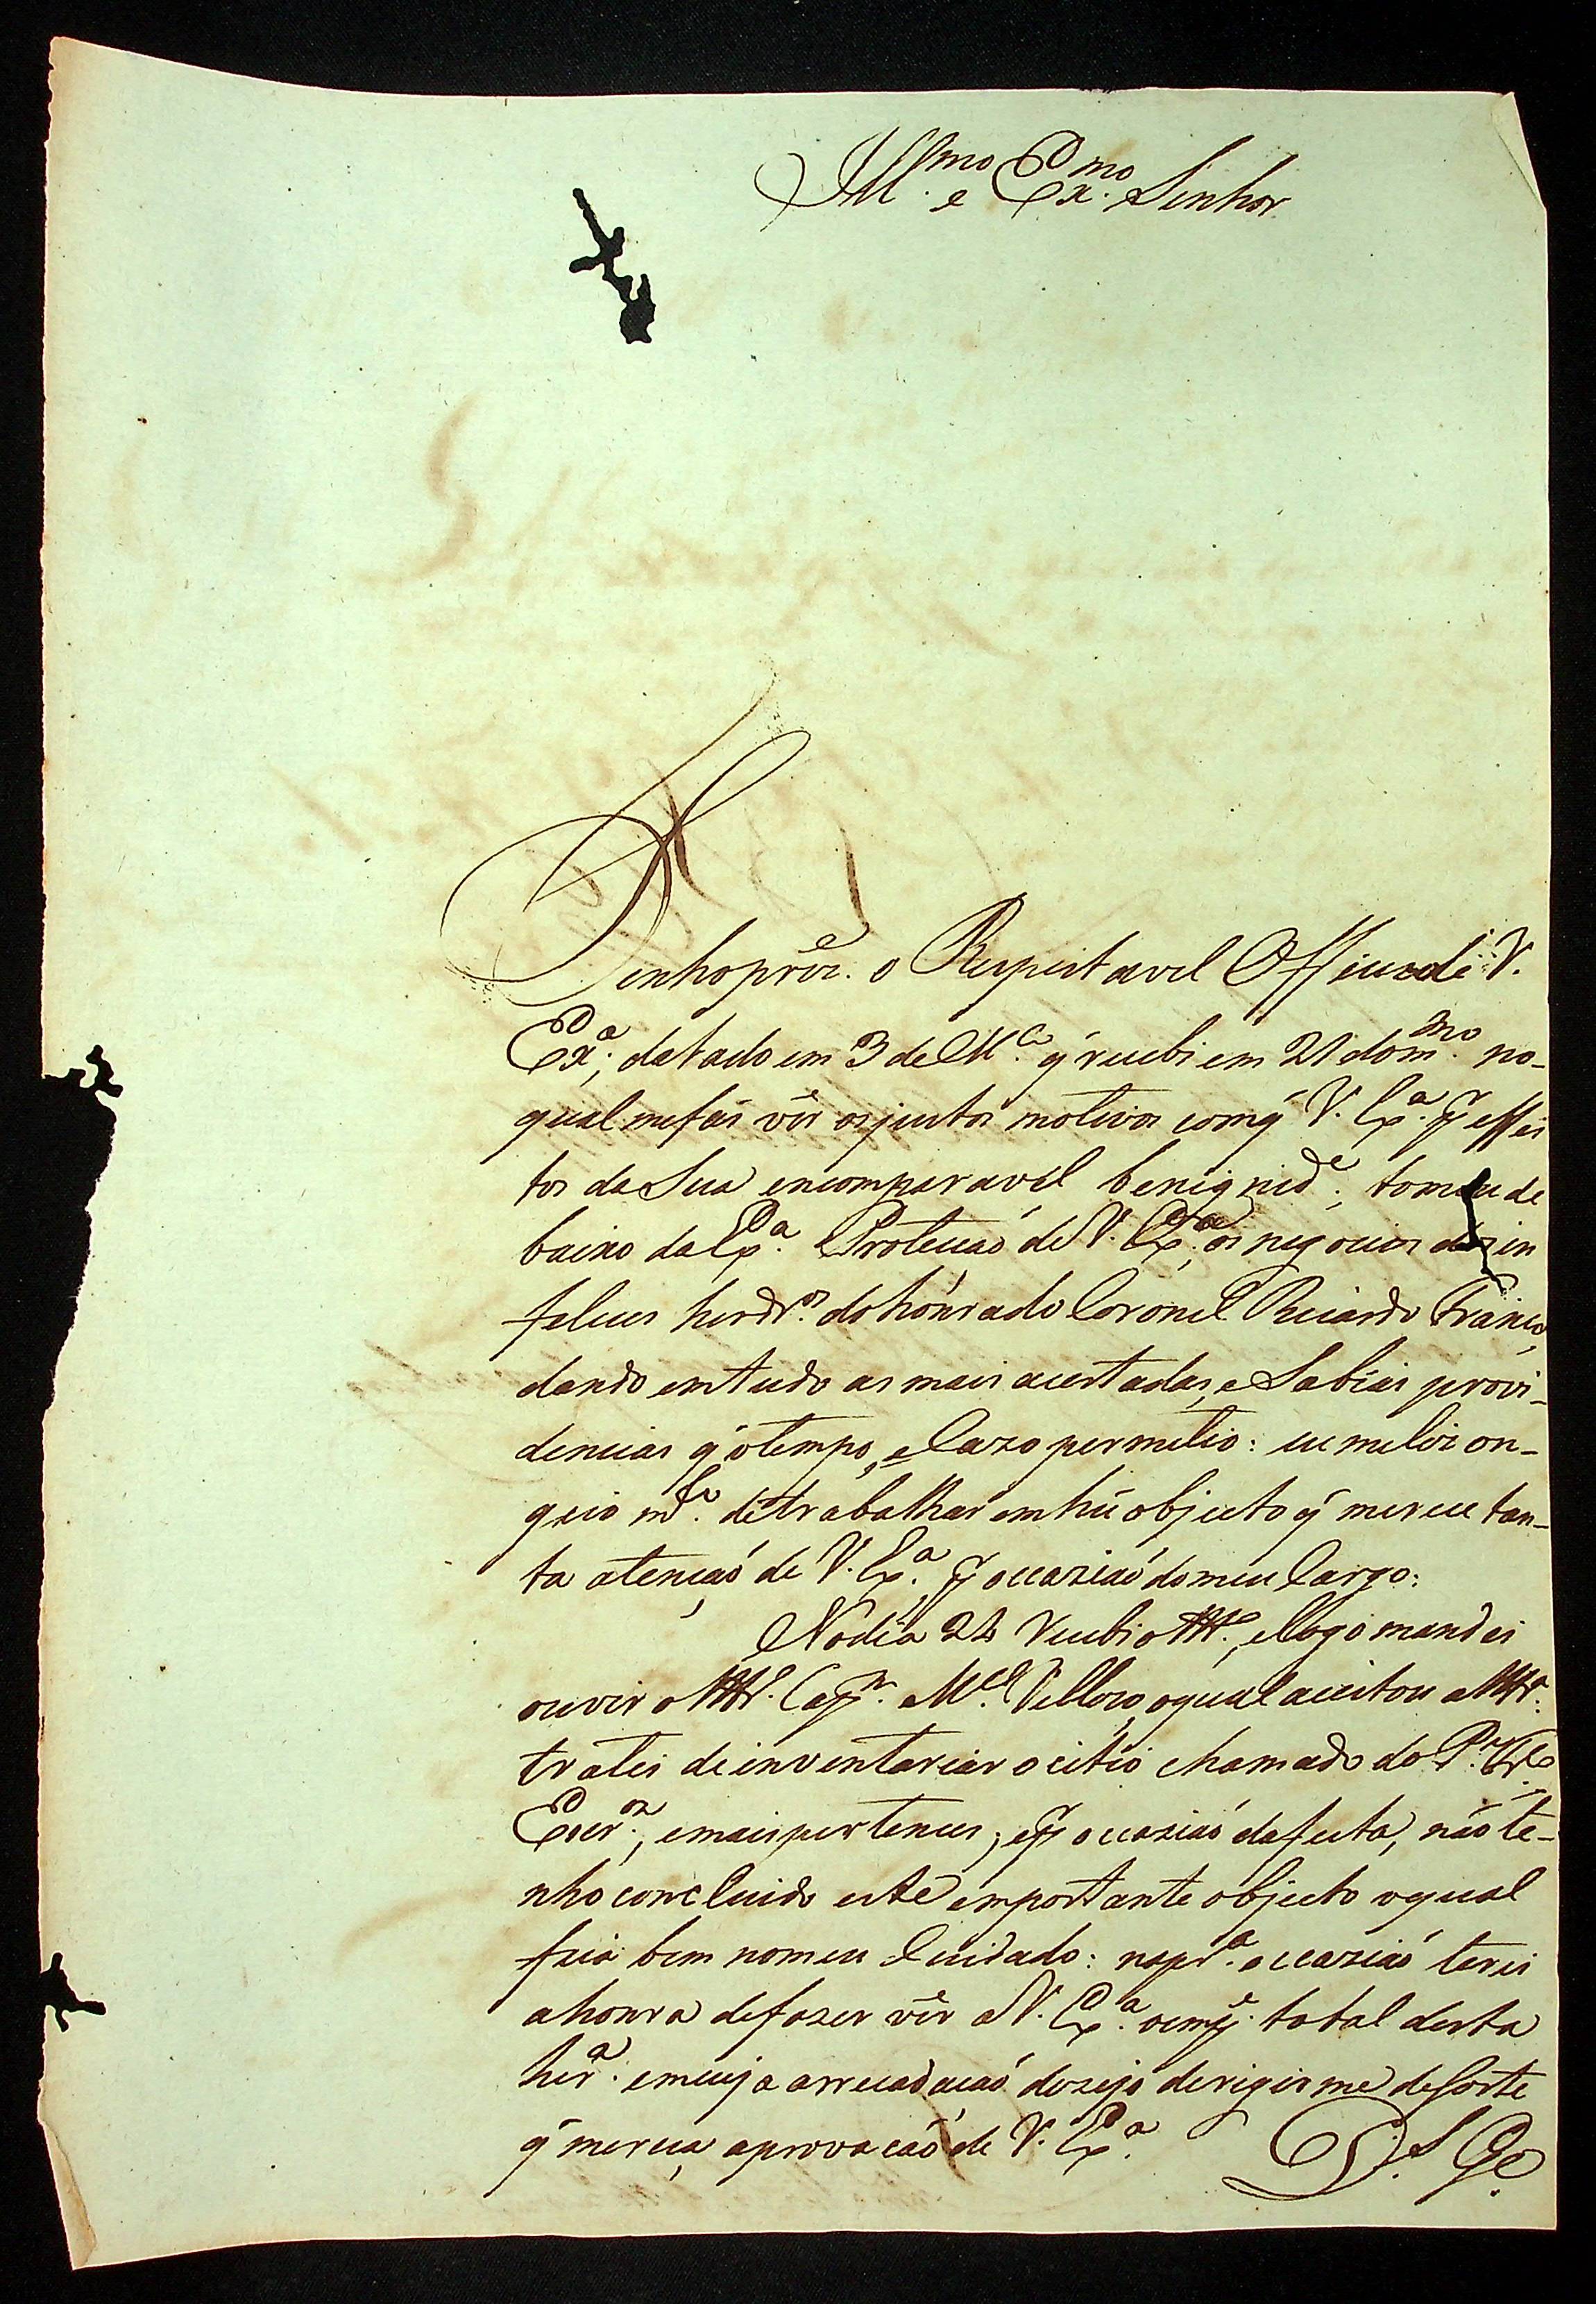 Ill.mo e Ex.mo Senhor
Tenho prez.e o Respeitavel Officio de V.
Ex.a; datado em 3 de M.ço q̃ recebi em 21 do m.mo no-
qual me fás vêr os justos motivos com q̃ V. Ex.a p.r effei
tos da Sua encomparavel benignid.e; tomou de
baixo da Ex.a Protecçaõ de V. Ex.a, os negocios dos in
felices herdr.os do hónrado Coronel Ricardo Franco,
dando em tudo as mais acertadas, e Sabias provi-
dencias q̃ o tempo, e Cazo permetio: eu me lizon-
geio m.to de trabalhar em hũ objecto q̃ merece tan-
ta atençaõ de V. Ex.a, p.r occaziaõ do meu Cargo:
No dia 24 recebi o , e logo mandei
ouvir o Cap.m M.el Vellozo, o qual aceitou a
tratei de inventariar o citio chamado do P.e
, e mais pertences; e p.r occaziaõ da festa, não te-
nho concluido este emportante objecto o qual
fica bem no meu Cuidado: na pr.a occaziaõ terei
a honra de fazer vêr a V. Ex.a total desta
her.a em cuja arrecadaçaõ dezejo derigirme de Sorte
q̃ mereça aprovacaõ de V. Ex.a D.s G.e